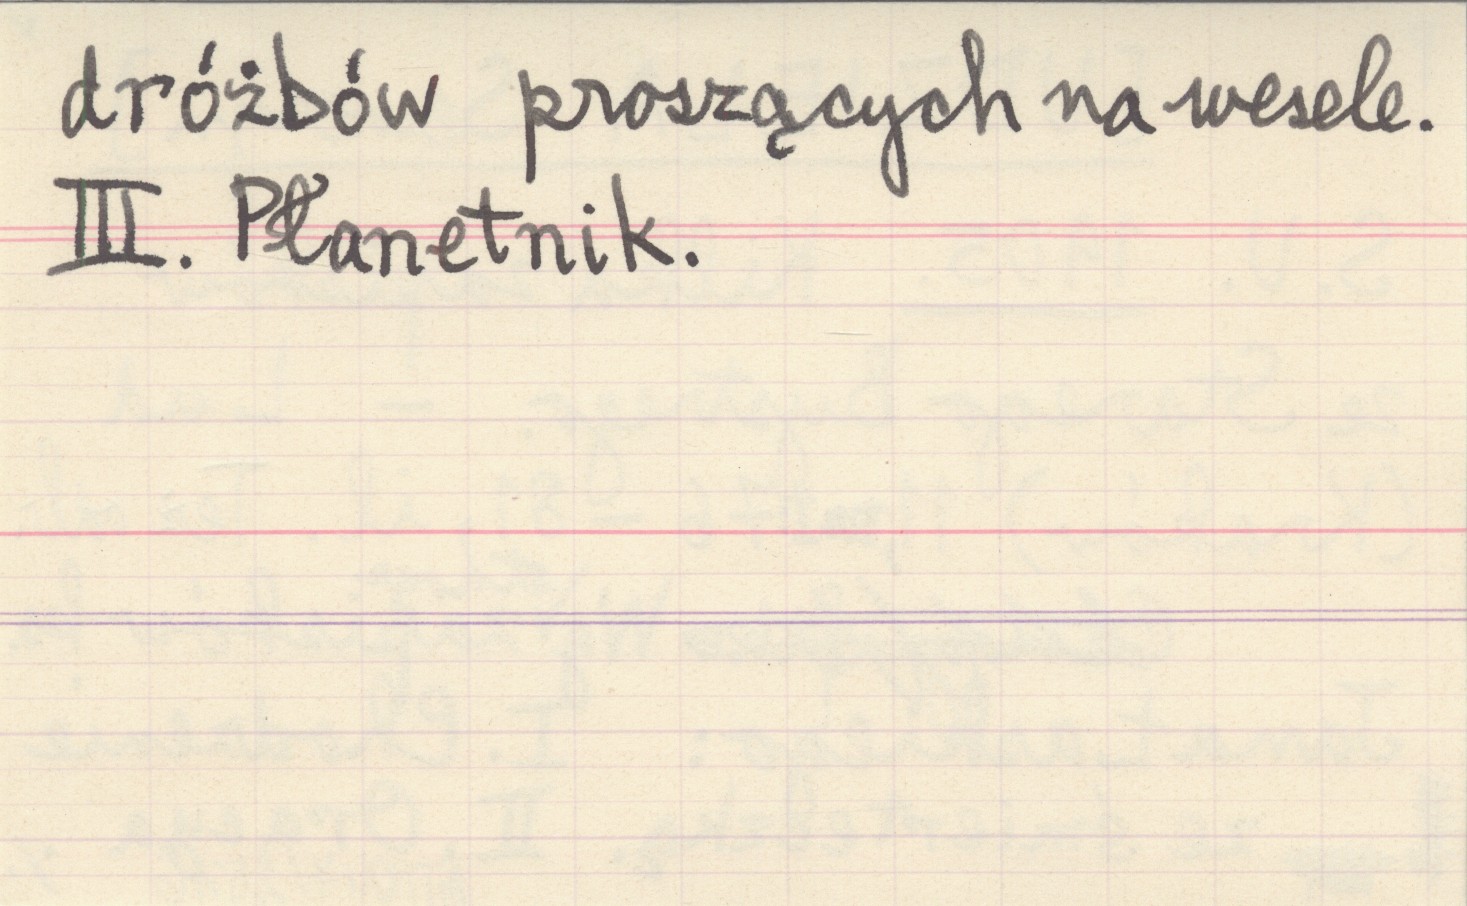 dróżbów proszących na wesele.
III. Płanetnik.